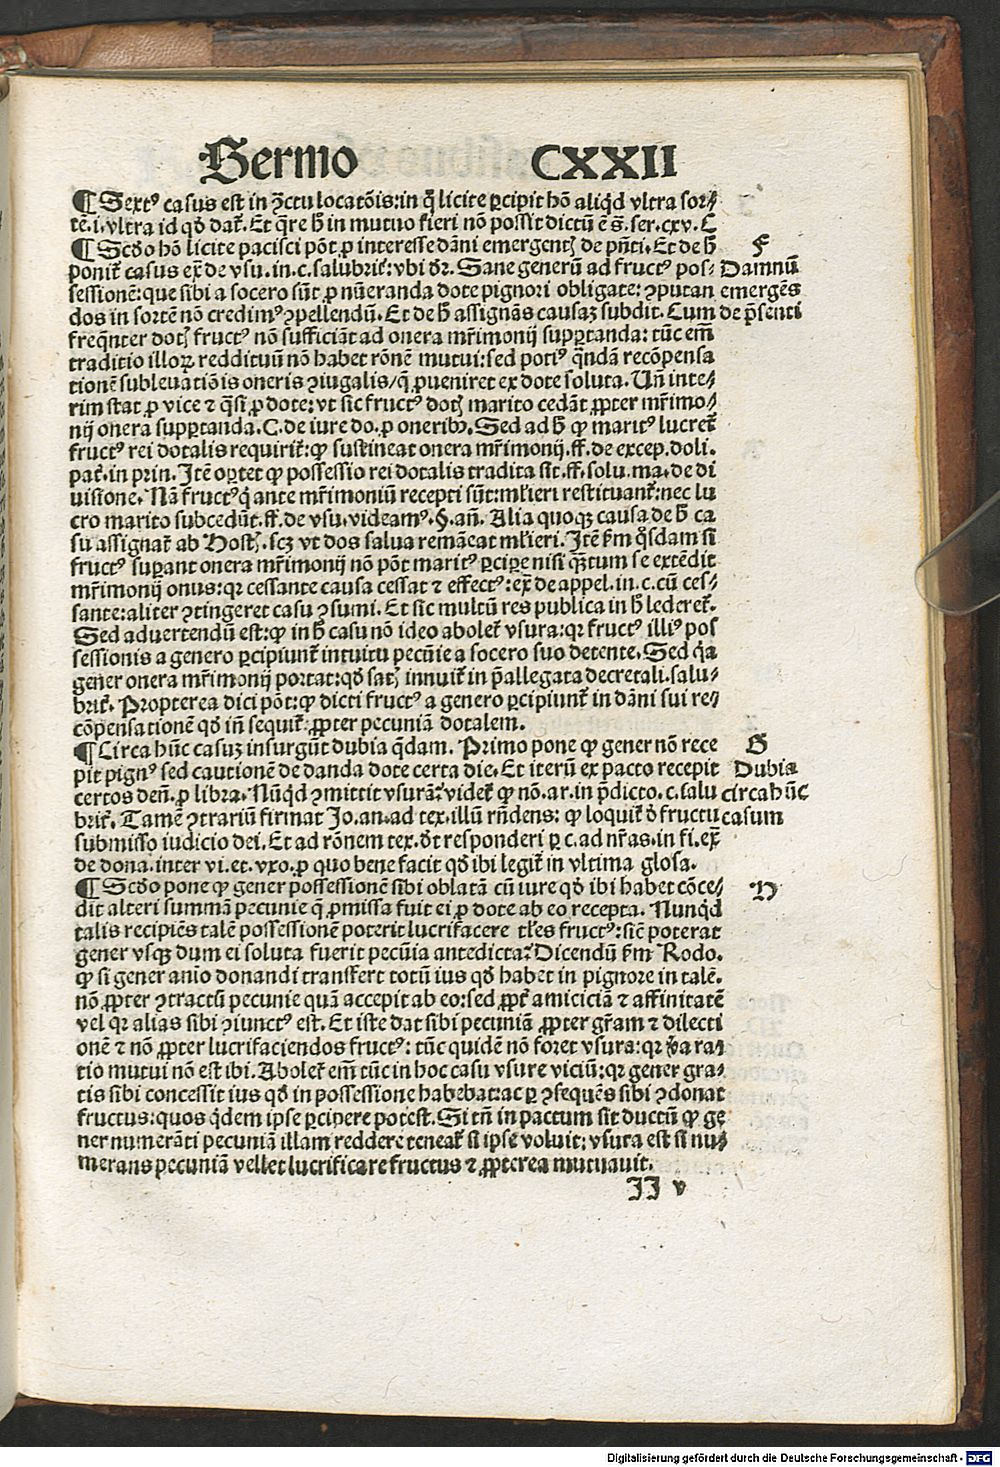 Sermo CXXII
¶ Sextꝰ casus est in ꝯ̃ctu locatõis: in q̃ licite ꝑcipit hõ aliq̃d vltra sor⸗
tẽ. i. vltra id qd̕ dat᷑. Et q̃re h̕ in mutuo fieri nõ possit dictũ ẽ s̃. ser. cxv. C
¶ Scd̕o hõ licite pacisci põt ꝓ interesse dãni emergentꝭ de p̃nti. Et de h̕
F
ponit᷑ casus ex̃ de vsu. in. c. salubrit᷑: vbi dr̃. Sane generũ ad fructꝰ pos⸗
Damnũ
sessionẽ: que sibi a socero sũt ꝓ nũeranda dote pignori obligate: ꝯputan
emergẽs
dos in sortẽ nõ credimꝰ ꝯpellendũ. Et de h̕ assignãs causaꝫ subdit. Cum
de p̃senti
freq̃nter dotꝭ fructꝰ nõ sufficiãt ad onera mr̃imonij supꝑtanda: tũc em̃
traditio illoꝝ reddituũ nõ habet rõnẽ mutui: sed potiꝰ q̃ndã recõpensa
tionẽ subleuatiõis oneris ꝯiugalis/ q̃ ꝓueniret ex dote soluta. Vñ inte⸗
rim stat ꝓ vice ⁊ q̃si ꝓ dote: vt sic fructꝰ dotꝭ marito cedãt ꝓpter mr̃imo⸗
nij onera supꝑtanda. C. de iure do. ꝓ oneribꝰ. Sed ad h̕ ꝙ maritꝰ lucret᷑
fructꝰ rei dotalis requirit᷑: ꝙ sustineat onera mr̃imonij. ff. de excep. doli.
pat᷑. in prin. Itẽ oꝑtet ꝙ possessio rei dotalis tradita sit. ff. solu. ma. de di
uisione. Nã fructꝰ q̃ ante mr̃imoniũ recepti sũt: ml̕ieri restituant᷑: nec lu
cro marito subcedũt. ff. de vsu. videamꝰ. §. añ. Alia quoqꝫ causa de h̕ ca
su assignat᷑ ab Hostꝭ. scꝫ vt dos salua remãeat ml̕ieri. Itẽ fm̃ q̃sdam si
fructꝰ suꝑant onera mr̃imonij nõ põt maritꝰ ꝑciꝑe nisi q̃tum se extẽdit
mr̃imonij onus: qꝛ cessante causa cessat ⁊ effectꝰ: ex̃ de appel. in. c. cũ ces⸗
sante: aliter ꝯtingeret casu ꝯsumi. Et sic multũ res publica in h̕ lederet᷑.
Sed aduertendũ est: ꝙ in h̕ casu nõ ideo abolet᷑ vsura: qꝛ fructꝰ illiꝰ pos
sessionis a genero ꝑcipiunt᷑ intuitu pecũie a socero suo detente. Sed q̃a
gener onera mr̃imonij portat: qd̕ satꝭ innuit᷑ in p̃allegata decretali. salu⸗
brit᷑. Propterea dici põt: ꝙ dicti fructꝰ a genero ꝑcipiunt᷑ in dãni sui re⸗
cõpensationẽ qd̕ iñ sequit᷑: ꝓpter pecuniã dotalem.
¶ Circa hũc casuꝫ insurgũt dubia q̃dam. Primo pone ꝙ gener nõ rece
G
pit pignꝰ sed cautionẽ de danda dote certa die. Et iterũ ex pacto recepit
Dubia
certos deñ. ꝓ libra. Nũqd̕ ꝯmittit vsurã? videt᷑ ꝙ nõ. ar. in p̃dicto. c. salu
circa hũc
brit᷑. Tamẽ ꝯtrariũ firmat Jo. an. ad tex. illũ rñdens: ꝙ loquit᷑ d̕ fructu
casum
submisso iudicio dei. Et ad rõnem tex. d̕t responderi ꝑ c. ad nr̃as. in fi. ex̃
de dona. inter vi. et. vxo. ꝓ quo bene facit qd̕ ibi legit᷑ in vltima glosa.
¶ Scd̕o pone ꝙ gener possessionẽ sibi oblatã cũ iure qd̕ ibi habet cõce⸗
H
dit alteri summã pecunie q̃ ꝓmissa fuit ei ꝓ dote ab eo recepta. Nunqd̕
talis recipiẽs talẽ possessionẽ poterit lucrifacere tl̕es fructꝰ: sicũ poterat
gener vsqꝫ dum ei soluta fuerit pecũia antedicta? Dicendũ fm̃ Rodo.
ꝙ si gener aĩo donandi transfert totũ ius qd̕ habet in pignore in talẽ.
nõ ꝓpter ꝯtractũ pecunie quã accepit ab eo: sed ꝓpt᷑ amiciciã ⁊ affinitatẽ
vel qꝛ alias sibi ꝯiunctꝰ est. Et iste dat sibi pecuniã ꝓpter gr̃am ⁊ dilecti
onẽ ⁊ nõ ꝓpter lucrifaciendos fructꝰ: tũc quidẽ nõ foret vsura: qꝛ ṽa ra⸗
tio mutui nõ est ibi. Abolet᷑ em̃ tũc in hoc casu vsure viciũ: qꝛ gener gra⸗
tis sibi concessit ius qd̕ in possessione habebat: ac ꝑ ꝯsequẽs sibi ꝯdonat
fructus: quos q̃dem ipse ꝑciꝑe potest. Si tñ in pactum sit ductũ ꝙ ge
ner numerãti pecuniã illam reddere teneat᷑ si ipse voluit: vsura est si nu⸗
merans pecuniã vellet lucrificare fructus ⁊ ꝓpterea mutuauit.
II v
Digitalisierung gefördert durch die Deutsche Forschungsgemeinschaft - DFG